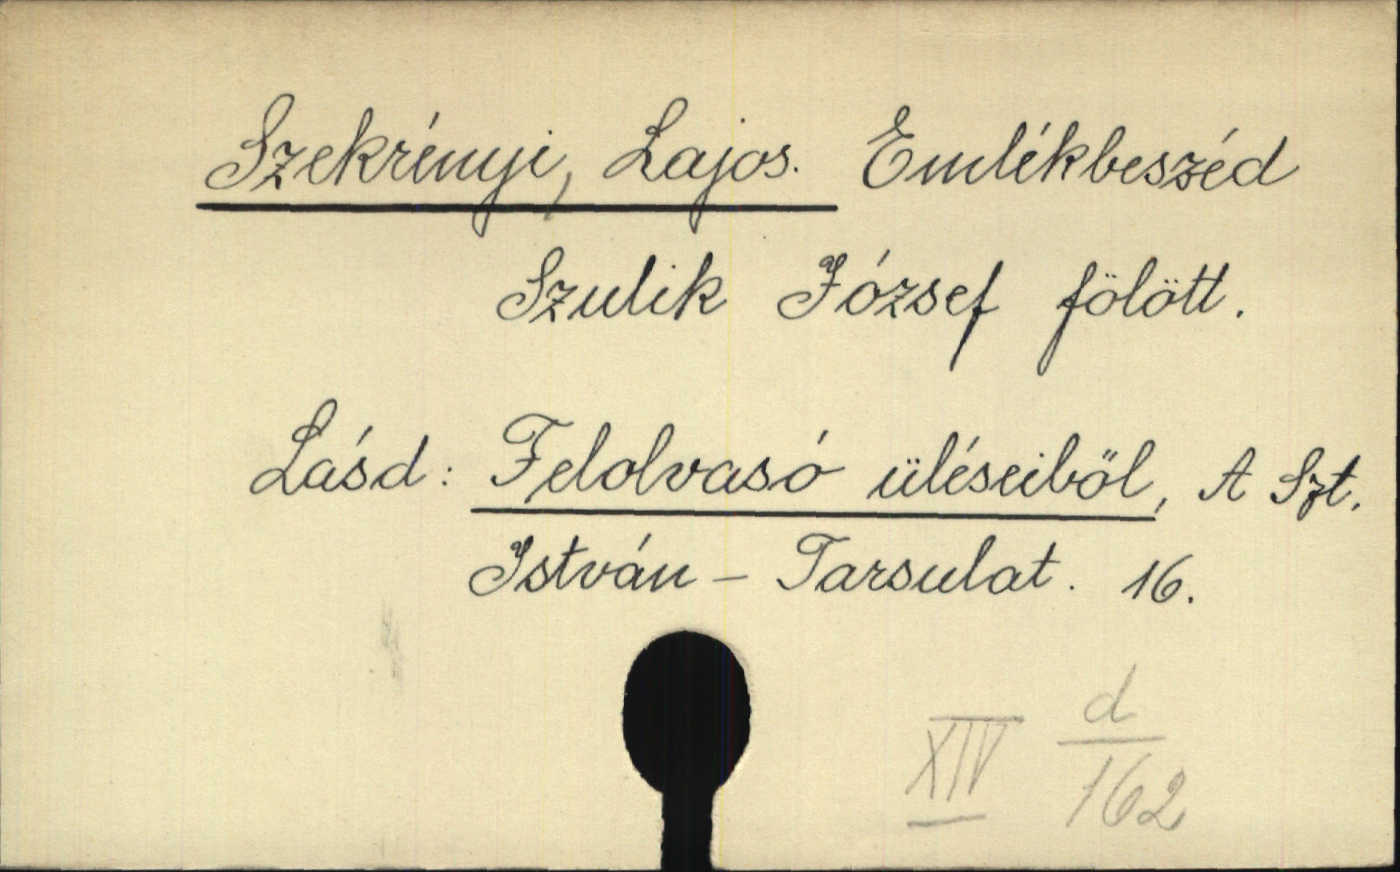 Szekrényi, Lajos. Emlékbeszéd
Szulik József fölött.
Lásd: Felolvasó üléseiből, A Szt.
István - Tarsulat. 16.
XIV d/162